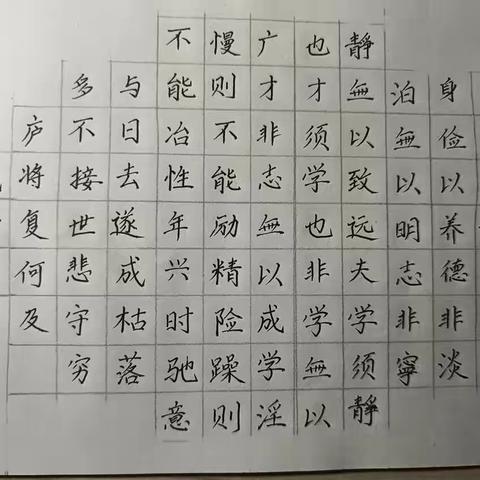 身俭以养德非淡
泊無以明志非寧
静無以致远夫学须静
也才须学也非学無以
广才非志無以成学淫
慢则不能励精险躁则
不能冶性年兴时驰意
与日去遂成枯落
多不接世悲守穷
庐将复何及